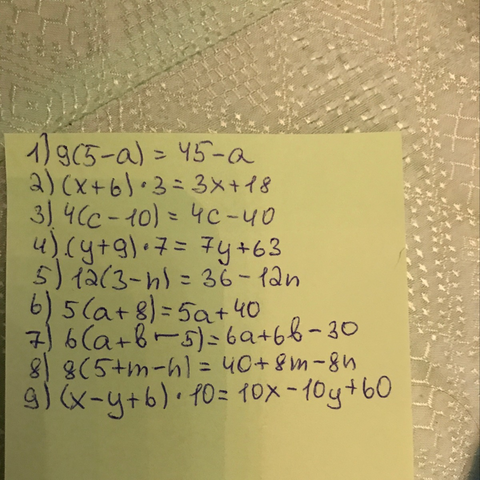 1) 9(5-a) = 45-a
2) (x+6)·3 = 3x+18
3) 4(c-10) = 4c-40
4) (y+9)·7 = 7y+63
5) 12(3-n) = 36-12n
6) 5(a+8) = 5a+40
7) 6(a+b-5) = 6a+6b-30
8) 8(5+m-n) = 40+8m-8n
9) (x-y+6)·10 = 10x-10y+60